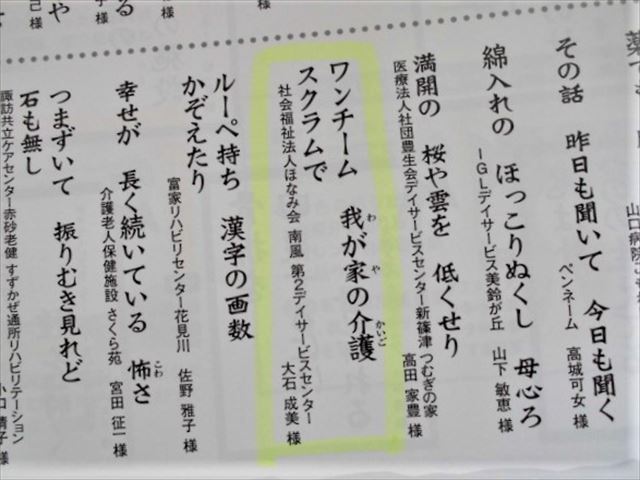 その話 昨日も聞いて 今日も聞く
ペンネーム 高城可女 様
綿入れの ほっこりぬくし 母心ろ
IGLデイサービス美鈴が丘 山下 敏恵 様
満開の 桜や雲を 低くせり
医療法人社団豊生会デイサービスセンター新篠津 つむぎの家 高田 家豊 様
ワンチーム 我が家の介護
わ や かいご
スクラムで
社会福祉法人ほなみ会 南風 第2デイサービスセンター 大石 成美 様
ルーペ持ち 漢字の画数
かぞえたり
富家リハビリセンター花見川 佐野 雅子 様
幸せが 長く続いている 怖さ
こわ
介護老人保健施設 さくら苑 宮田 征一 様
つまずいて 振りむき見れど
石も無し
諏訪共立ケアセンター赤砂老健 すずかぜ通所リハビリテーション